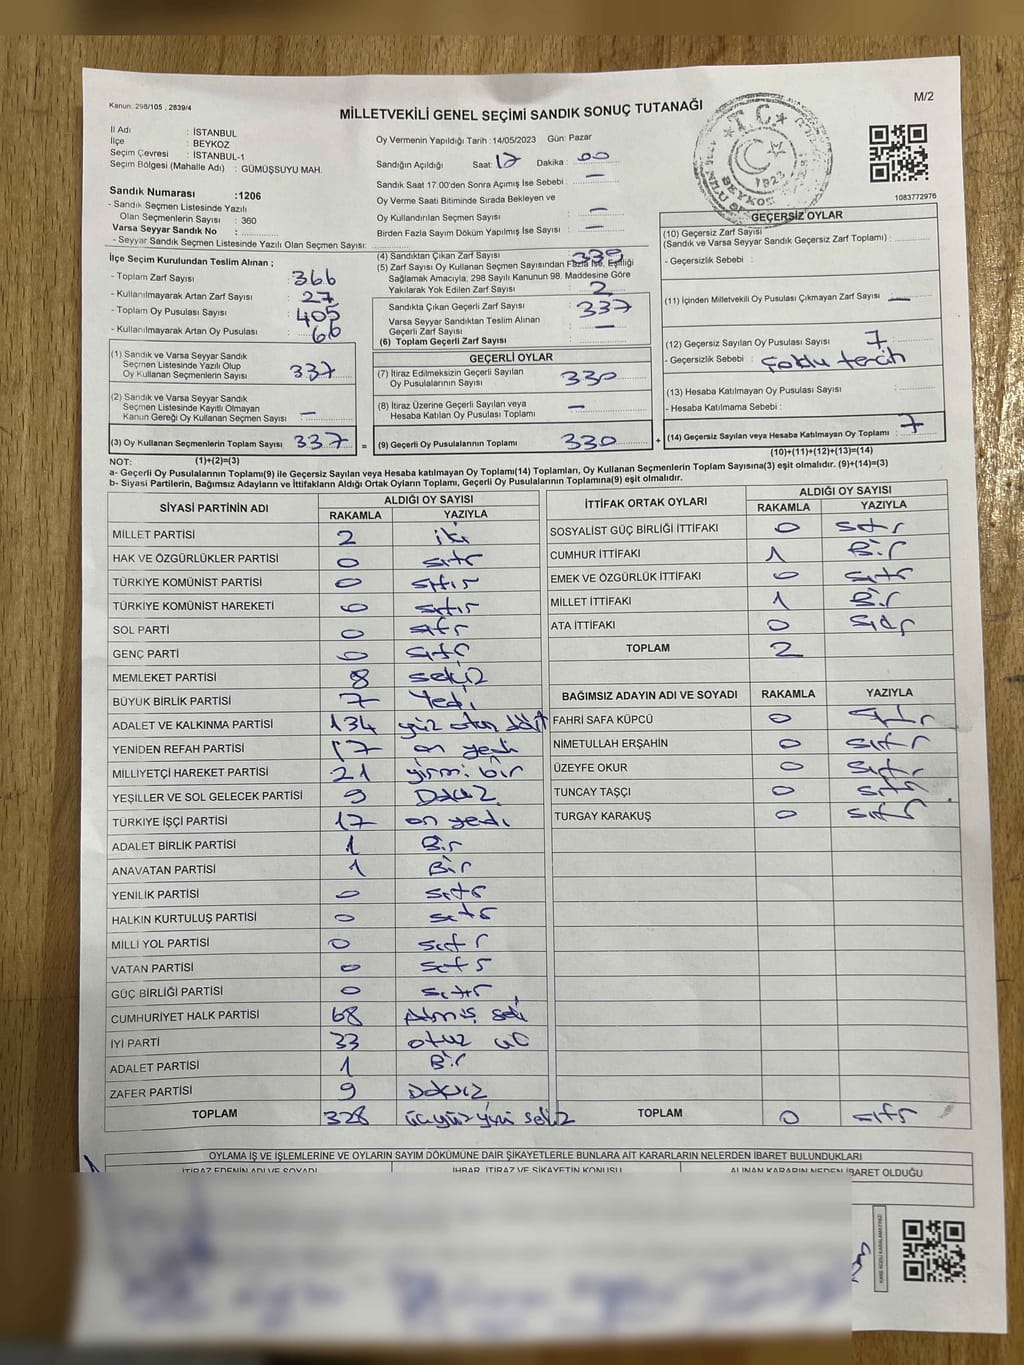 Kanun. 298/105 , 2839/4
MİLLETVEKİLİ GENEL SEÇİMİ SANDIK SONUÇ TUTANAĞI
M/2
İl Adı : İSTANBUL
İlçe : BEYKOZ
Seçim Çevresi : İSTANBUL-1
Seçim Bölgesi (Mahalle Adı) : GÜMÜŞSUYU MAH.
Sandık Numarası :1206
- Sandık Seçmen Listesinde Yazılı
Olan Seçmenlerin Sayısı : 360
Varsa Seyyar Sandık No :
- Seyyar Sandık Seçmen Listesinde Yazılı Olan Seçmen Sayısı:
Oy Vermenin Yapıldığı Tarih :14/05/2023 Gün: Pazar
Sandığın Açıldığı Saat: 17 Dakika : 00
Sandık Saat 17.00'den Sonra Açımış İse Sebebi : —
Oy Verme Saati Bitiminde Sırada Bekleyen ve
Oy Kullandırılan Seçmen Sayısı : —
Birden Fazla Sayım Döküm Yapılmış İse Sayısı : —
T.C.
1923
BEYKOZ
1083772976
İlçe Seçim Kurulundan Teslim Alınan ;
- Toplam Zarf Sayısı : 366
- Kullanılmayarak Artan Zarf Sayısı : 27
- Toplam Oy Pusulası Sayısı : 405
- Kullanılmayarak Artan Oy Pusulası : 66
(1) Sandık ve Varsa Seyyar Sandık
Seçmen Listesinde Yazılı Olup
Oy Kullanan Seçmenlerin Sayısı : 337
(2) Sandık ve Varsa Seyyar Sandık
Seçmen Listesinde Kayıtlı Olmayan
Kanun Gereği Oy Kullanan Seçmen Sayısı : —
(3) Oy Kullanan Seçmenlerin Toplam Sayısı : 337 =
(1)+(2)=(3)
(4) Sandıktan Çıkan Zarf Sayısı : 339
(5) Zarf Sayısı Oy Kullanan Seçmen Sayısından Fazla İse, Eşitliği
Sağlamak Amacıyla, 298 Sayılı Kanunun 98. Maddesine Göre
Yakılarak Yok Edilen Zarf Sayısı : 2
Sandıkta Çıkan Geçerli Zarf Sayısı : 337
Varsa Seyyar Sandıktan Teslim Alınan
Geçerli Zarf Sayısı : —
(6) Toplam Geçerli Zarf Sayısı :
GEÇERLİ OYLAR
(7) İtiraz Edilmeksizin Geçerli Sayılan
Oy Pusulalarının Sayısı : 330
(8) İtiraz Üzerine Geçerli Sayılan veya
Hesaba Katılan Oy Pusulası Toplamı : —
(9) Geçerli Oy Pusulalarının Toplamı : 330 +
GEÇERSİZ OYLAR
(10) Geçersiz Zarf Sayısı
(Sandık ve Varsa Seyyar Sandık Geçersiz Zarf Toplamı) :
- Geçersizlik Sebebi :
(11) İçinden Milletvekili Oy Pusulası Çıkmayan Zarf Sayısı : —
(12) Geçersiz Sayılan Oy Pusulası Sayısı : 7
- Geçersizlik Sebebi : Çoklu tercih
(13) Hesaba Katılmayan Oy Pusulası Sayısı :
- Hesaba Katılmama Sebebi :
(14) Geçersiz Sayılan veya Hesaba Katılmayan Oy Toplamı : 7
(10)+(11)+(12)+(13)=(14)
NOT:
a- Geçerli Oy Pusulalarının Toplamı(9) ile Geçersiz Sayılan veya Hesaba katılmayan Oy Toplamı(14) Toplamları, Oy Kullanan Seçmenlerin Toplam Sayısına(3) eşit olmalıdır. (9)+(14)=(3)
b- Siyasi Partilerin, Bağımsız Adayların ve İttifakların Aldığı Ortak Oyların Toplamı, Geçerli Oy Pusulalarının Toplamına(9) eşit olmalıdır.
SİYASİ PARTİNİN ADI
ALDIĞI OY SAYISI
RAKAMLA YAZIYLA
MİLLET PARTİSİ 2 iki
HAK VE ÖZGÜRLÜKLER PARTİSİ 0 sıfır
TÜRKİYE KOMÜNİST PARTİSİ 0 sıfır
TÜRKİYE KOMÜNİST HAREKETİ 0 sıfır
SOL PARTİ 0 sıfır
GENÇ PARTİ 0 sıfır
MEMLEKET PARTİSİ 8 sekiz
BÜYÜK BİRLİK PARTİSİ 7 Yedi
ADALET VE KALKINMA PARTİSİ 134 yüz otuz dört
YENİDEN REFAH PARTİSİ 17 on yedi
MİLLİYETÇİ HAREKET PARTİSİ 21 yirmi bir
YEŞİLLER VE SOL GELECEK PARTİSİ 9 Dokuz
TÜRKİYE İŞÇİ PARTİSİ 17 on yedi
ADALET BİRLİK PARTİSİ 1 Bir
ANAVATAN PARTİSİ 1 Bir
YENİLİK PARTİSİ 0 sıfır
HALKIN KURTULUŞ PARTİSİ 0 sıfır
MİLLİ YOL PARTİSİ 0 sıfır
VATAN PARTİSİ 0 sıfır
GÜÇ BİRLİĞİ PARTİSİ 0 sıfır
CUMHURİYET HALK PARTİSİ 68 Atmış seki
İYİ PARTİ 33 otuz üç
ADALET PARTİSİ 1 Bir
ZAFER PARTİSİ 9 Dokuz
TOPLAM 328 üçyüz yirmi sekiz
İTTİFAK ORTAK OYLARI
ALDIĞI OY SAYISI
RAKAMLA YAZIYLA
SOSYALİST GÜÇ BİRLİĞİ İTTİFAKI 0 sıfır
CUMHUR İTTİFAKI 1 Bir
EMEK VE ÖZGÜRLÜK İTTİFAKI 0 sıfır
MİLLET İTTİFAKI 1 Bir
ATA İTTİFAKI 0 sıfır
TOPLAM 2
BAĞIMSIZ ADAYIN ADI VE SOYADI RAKAMLA YAZIYLA
FAHRİ SAFA KÜPCÜ 0 sıfır
NİMETULLAH ERŞAHİN 0 sıfır
ÜZEYFE OKUR 0 sıfır
TUNCAY TAŞÇI 0 sıfır
TURGAY KARAKUŞ 0 sıfır
TOPLAM 0 sıfır
OYLAMA İŞ VE İŞLEMLERİNE VE OYLARIN SAYIM DÖKÜMÜNE DAİR ŞİKAYETLERLE BUNLARA AİT KARARLARIN NELERDEN İBARET BULUNDUKLARI
İTİRAZ EDENİN ADI VE SOYADI İHBAR, İTİRAZ VE ŞİKAYETİN KONUSU ALINAN KARARIN NEDEN İBARET OLDUĞU